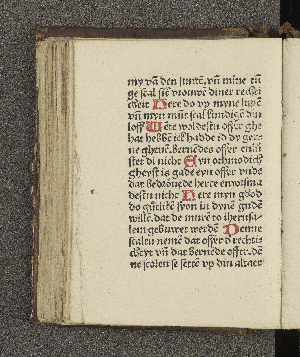 my vā den sunte. vñ mine tū
ge scal sik vrouwē diner rechti
cheit Here do vp myne lippē
vñ myn mūt scal kundigē din
loff Were woldestu offer ghe
hat hebbē ick hadde id dy gern
ne gheuē. bernēdes offer enlu
stet di nicht Eyn othmodich
gheyst is gade eyn offer vnde
dat bedrouede herte envorsma
destu nicht Here myn god do
do gutlikē syon in dynē gude
wille. dat de mure to iherusa
lem gebuwet werdē Denne
scaltu nemē dat offer d rechti
cheyt vñ dat bernēde offer. dē
ne scolen se settē vp din altaer